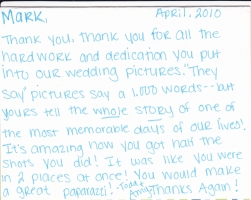 Mark,
April, 2010
Thank you, thank you for all the
hardwork and dedication you put
into our wedding pictures. "They
say" pictures say a 1,000 words--but
yours tell the whole story of one of
the most memorable days of our lives!
It's amazing how you got half the
shots you did! It was like you were
in 2 places at once! You would make
a great paparazzi! -Todd &
Thanks Again!